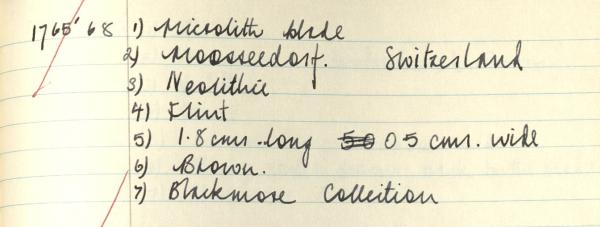 1765'68 1) Microlith blade
2) Moosseedorf. Switzerland
3) Neolithic
4) Flint
5) 1.8 cms. long 0.5 cms. wide
6) Brown.
7) Blackmore Collection